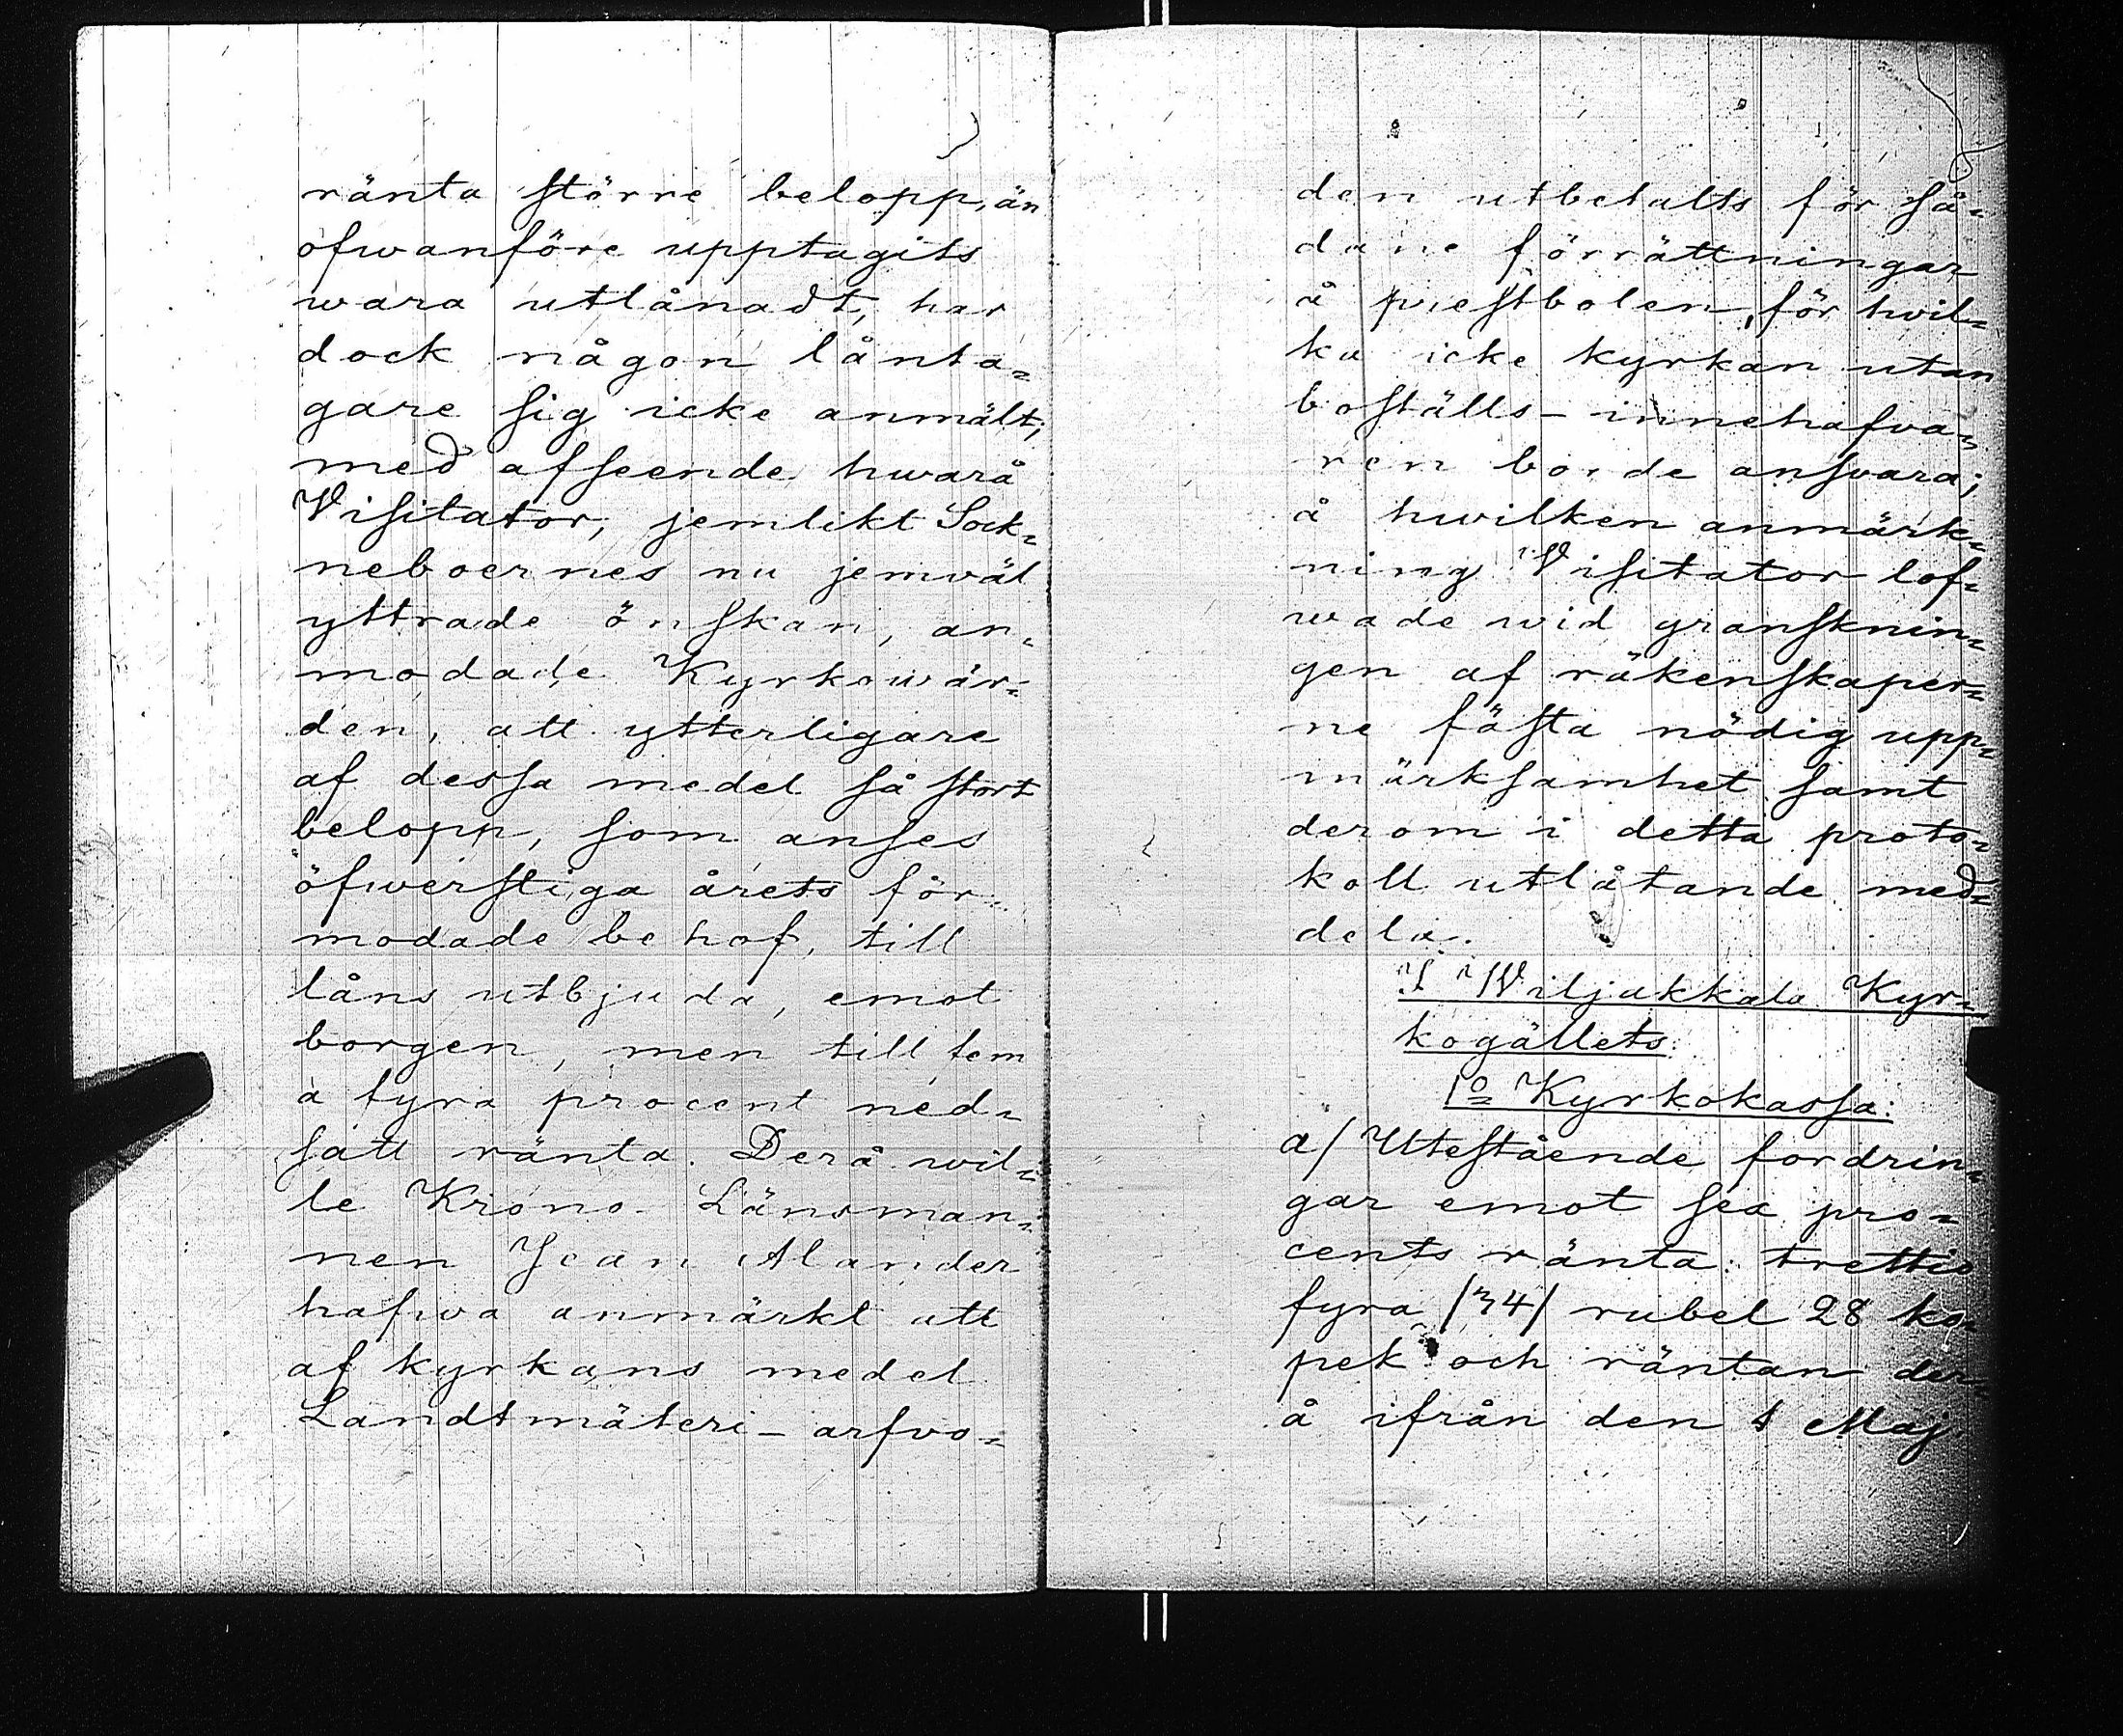 ränta större belopp, än
ofwanföre upptagits
wara utlånadt, har
dock någon lånta=
gare sig icke anmält;
med afseende hwarå
Visitator, jemlikt Sock=
neboernes nu jemväl
yttrade önskan, an=
modade Kyrkowär=
den, att ytterligare
af dessa medel så stort
belopp, som anses
öfwerstiga årets för=
modade behof, till
låns utbjuda, emot
borgen, men till fem
a fyra procent ned=
satt ränta. Derå wil=
le Krono Länsman=
nen Jean Alander
hafva anmärkt att
af kyrkans medel
Landtmäteri-arfvo=
den utbetalts för så=
dane förrättningar
å prestbolen, för hvil=
ka icke kyrkan utan
boställs-innehafva=
ren borde ansvara;
å hwilken anmärk=
ning Visitator lof=
wade wid gransknin=
gen af räkenskaper=
ne fästa nödig upp=
märksamhet samt
derom i detta proto=
koll utlåtande med=
dela.
I Wiljakkala Kyr=
kogällets
1º Kyrkokassa:
a/ Utestående fordrin=
gar emot sex pro=
cents ränta: trettio
fyra /34/ rubel 28 ko=
pek och räntan der=
å ifrån den 1 Maj